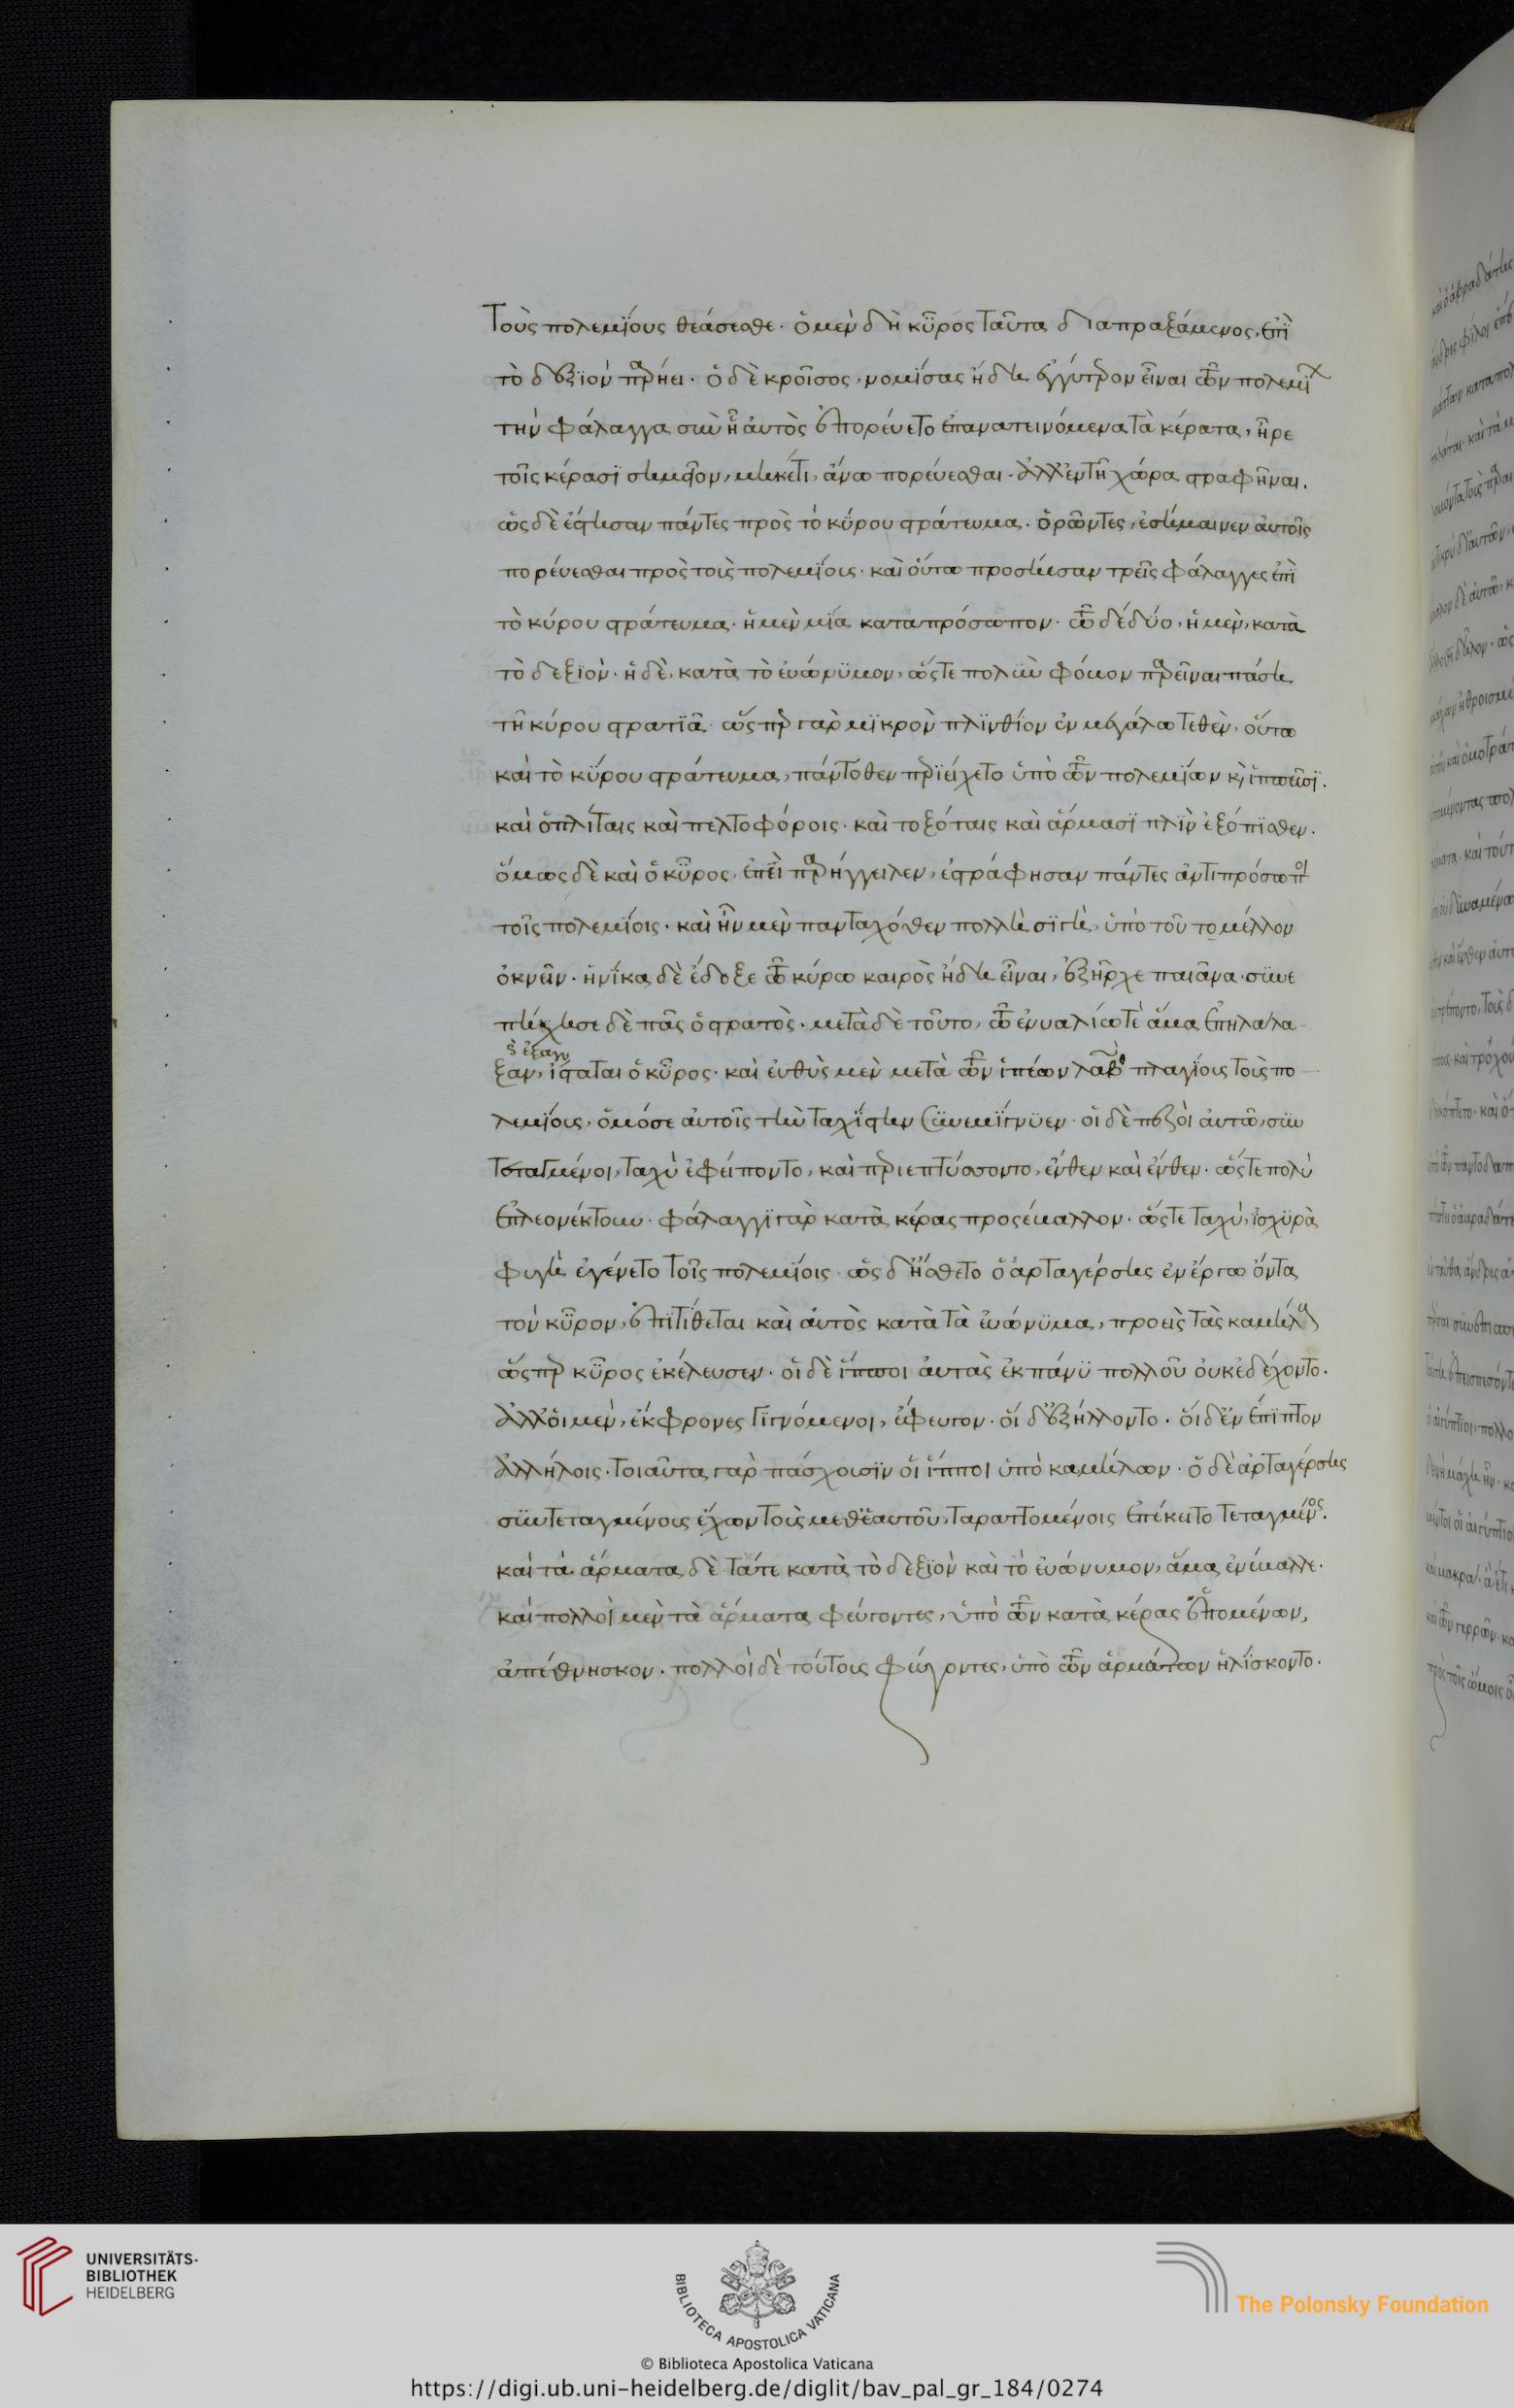 Τοὺς πολεμΐους θεάσεσθε. ὁ μὲν δὴ κῦρος ταῦτα διαπραξάμενος, ἐπὶ
τὸ δεξϊὸν παρήει. ὁ δὲ κροῖσος, νομίσας ἤδη ἐγγύτερον εἶναι τῶν πολεμΐων
τὴν φάλαγγα σὺν ᾗ αὐτὸς ἐπορεύετο ἐπανατεινόμενα τὰ κέρατα, ἦρε
τοῖς κέρασϊ σημεῖον, μηκέτι, ἄνω πορεύεσθαι. ἀλλ' ἐν τῇ χώρα στραφῆναι.
ὡς δὲ ἔστησαν πάντες πρὸς τὸ κύρου στράτευμα. ὁρῶντες, ἐσήμαινεν αὐτοῖς
πορεύεσθαι πρὸς τοὺς πολεμΐους. καὶ οὕτω προσήεσαν τρεῖς φάλαγγες ἐπῒ
τὸ κύρου στράτευμα. ἡ μὲν μΐα καταπρόσωπον. τῶ δὲ δύο, ἡ μὲν, κατὰ
τὸ δεξϊὸν. ἡ δὲ, κατὰ τὸ εὐώνϋμον, ὥςτε πολὺν φόβον παρεῖναι πάση
τῆ κύρου στρατιᾶ. ὥςπερ γὰρ μϊκρὸν πλϊνθίον ἐν μεγάλω τεθὲν, οὕτω
καὶ τὸ κύρου στράτευμα, πάντοθεν περϊείχετο ὑπὸ τῶν πολεμΐων καὶ ἱππεῦσϊ.
καὶ ὁπλίταις καὶ πελτοφόροις. καὶ τοξόταις καὶ ἅρμασϊ πλὴν ἐξόπϊσθεν.
ὅμως δὲ καὶ ὁ κῦρος, ἐπεὶ παρήγγειλεν, ἐστράφησαν πάντες ἀντιπρόσωποι
τοῖς πολεμΐοις. καὶ ἦν μὲν πανταχόθεν πολλὴ σϊγὴ, ὑπὸ τοῦ το μέλλον
ὀκνεῖν. ἡνΐκα δὲ ἔδοξε τῶ κύρω καιρὸς ἤδη εἶναι, ἐξῆρχε παιᾶνα. σϋνε
πήχησε δὲ πᾶς ὁ στρατὸς. μετὰ δὲ τοῦτο, τῶ ἐνυαλίω τὲ ἅμα ἐπηλάλα
ξαν, ἐξανίσταται ὁ κῦρος. καὶ εὐθὺς μὲν μετὰ τῶν ἱππέων λαβὼν πλαγίους τοὺς πο
λεμΐους, ὁμόσε αὐτοῖς τὴν ταχίστην συνεμΐγνϋεν. οἱ δὲ πεζοὶ αὐτῶ, συν
τεταγμένοι, ταχὺ ἐφείποντο, καὶ περιεπτύσσοντο, ἔνθεν καὶ ἔνθεν. ὥςτε πολὺ
ἐπλεονέκτουν. φάλαγγϊ γὰρ κατὰ κέρας προςέβαλλον. ὥςτε ταχὺ, ἰσχϋρὰ
φυγὴ ἐγένετο τοῖς πολεμΐοις. ὡς δ' ἤσθετο ὁ ἀρταγέρσης ἐν ἔργω ὄντα
τὸν κῦρον, ἐπϊτίθεται καὶ αὐτὸς κατὰ τὰ εὐώνϋμα, προεὶς τὰς καμήλους
ὥςπερ κῦρος ἐκέλευσεν. οἱ δὲ ἵπποι αὐτὰς ἐκ πάνϋ πολλοῦ οὐκ ἐδέχοντο.
ἀλλ' οἱ μὲν, ἔκφρονες γϊγνόμενοι, ἔφευγον. οἱ δ' ἐξήλλοντο. οἱ δ' ἐν ἐπΐπτον
ἀλλήλοις. τοιαῦτα γὰρ πάσχουσϊν οἱ ἵπποι ὑπὸ καμήλων. ὁ δὲ ἀρταγέρσης
συντεταγμένους ἔχων τοὺς μεθ' ἑαυτοῦ, ταραττομένοις ἐπέκειτο τεταγμένος.
καὶ τὰ ἅρματα δὲ τάτε κατὰ τὸ δεξϊὸν καὶ τὸ εὐώνυμον, ἅμα ἐνέβαλλε.
καὶ πολλοὶ μὲν τὰ ἅρματα φεύγοντες, ὑπὸ τῶν κατὰ κέρας ἑπομένων,
ἀπέθνησκον. πολλοὶ δὲ τούτους φεύγοντες, ὑπὸ τῶν ἁρμάτων ἡλΐσκοντο.
UNIVERSITÄTS-
BIBLIOTHEK
HEIDELBERG
BIBLIOTECA APOSTOLICA VATICANA
The Polonsky Foundation
© Biblioteca Apostolica Vaticana
https://digi.ub.uni-heidelberg.de/diglit/bav_pal_gr_184/0274